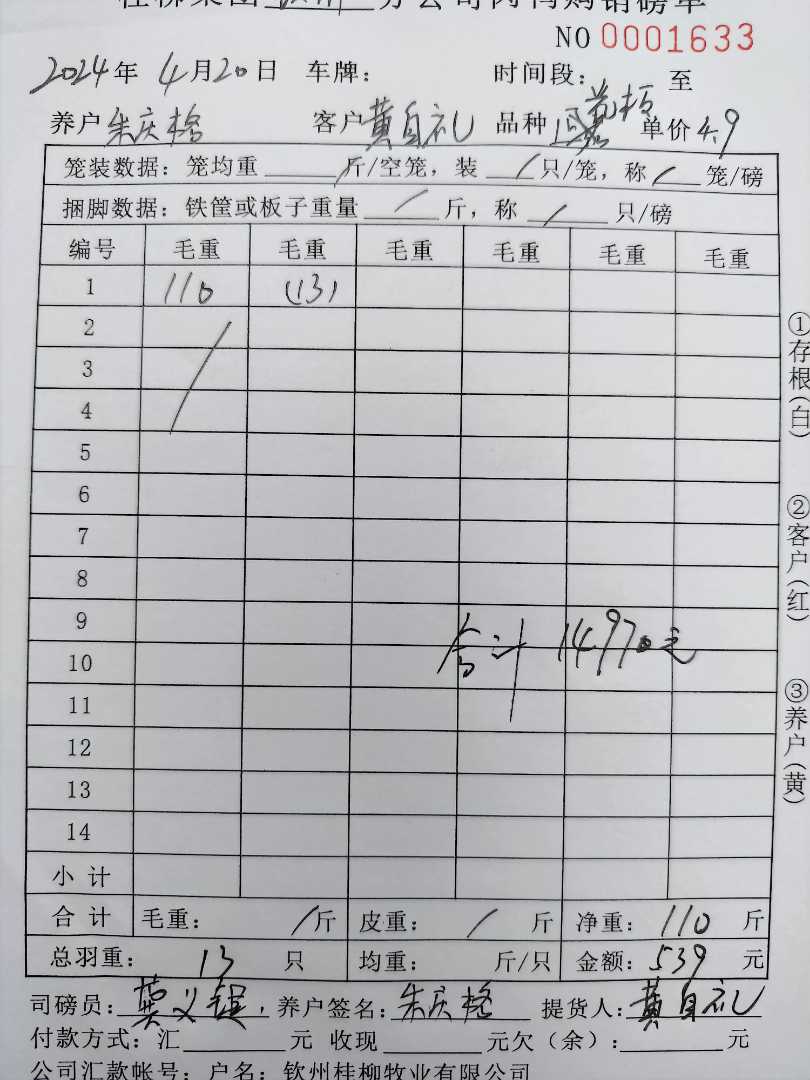 NO 0001633
2024年 4月20日 车牌： 时间段： 至
养户 朱庆 客户 黄自礼 品种 单价 4.9
笼装数据：笼均重 / 斤/空笼，装 / 只/笼，称 / 笼/磅
捆脚数据：铁筐或板子重量 / 斤，称 / 只/磅
编号 毛重 毛重 毛重 毛重 毛重 毛重
1 110 (13)
2
3
4
5
6
7
8
9
合计 14970元
10
11
12
13
14
小计
合计 毛重： / 斤 皮重： / 斤 净重： 110 斤
总羽重： 13 只 均重： 斤/只 金额： 539 元
司磅员： 莫义 ，养户签名： 朱庆 提货人： 黄自礼
付款方式：汇 元 收现 元欠（余）： 元
公司汇款帐号：户名：钦州桂柳牧业有限公司
①存根(白)
②客户(红)
③养户(黄)